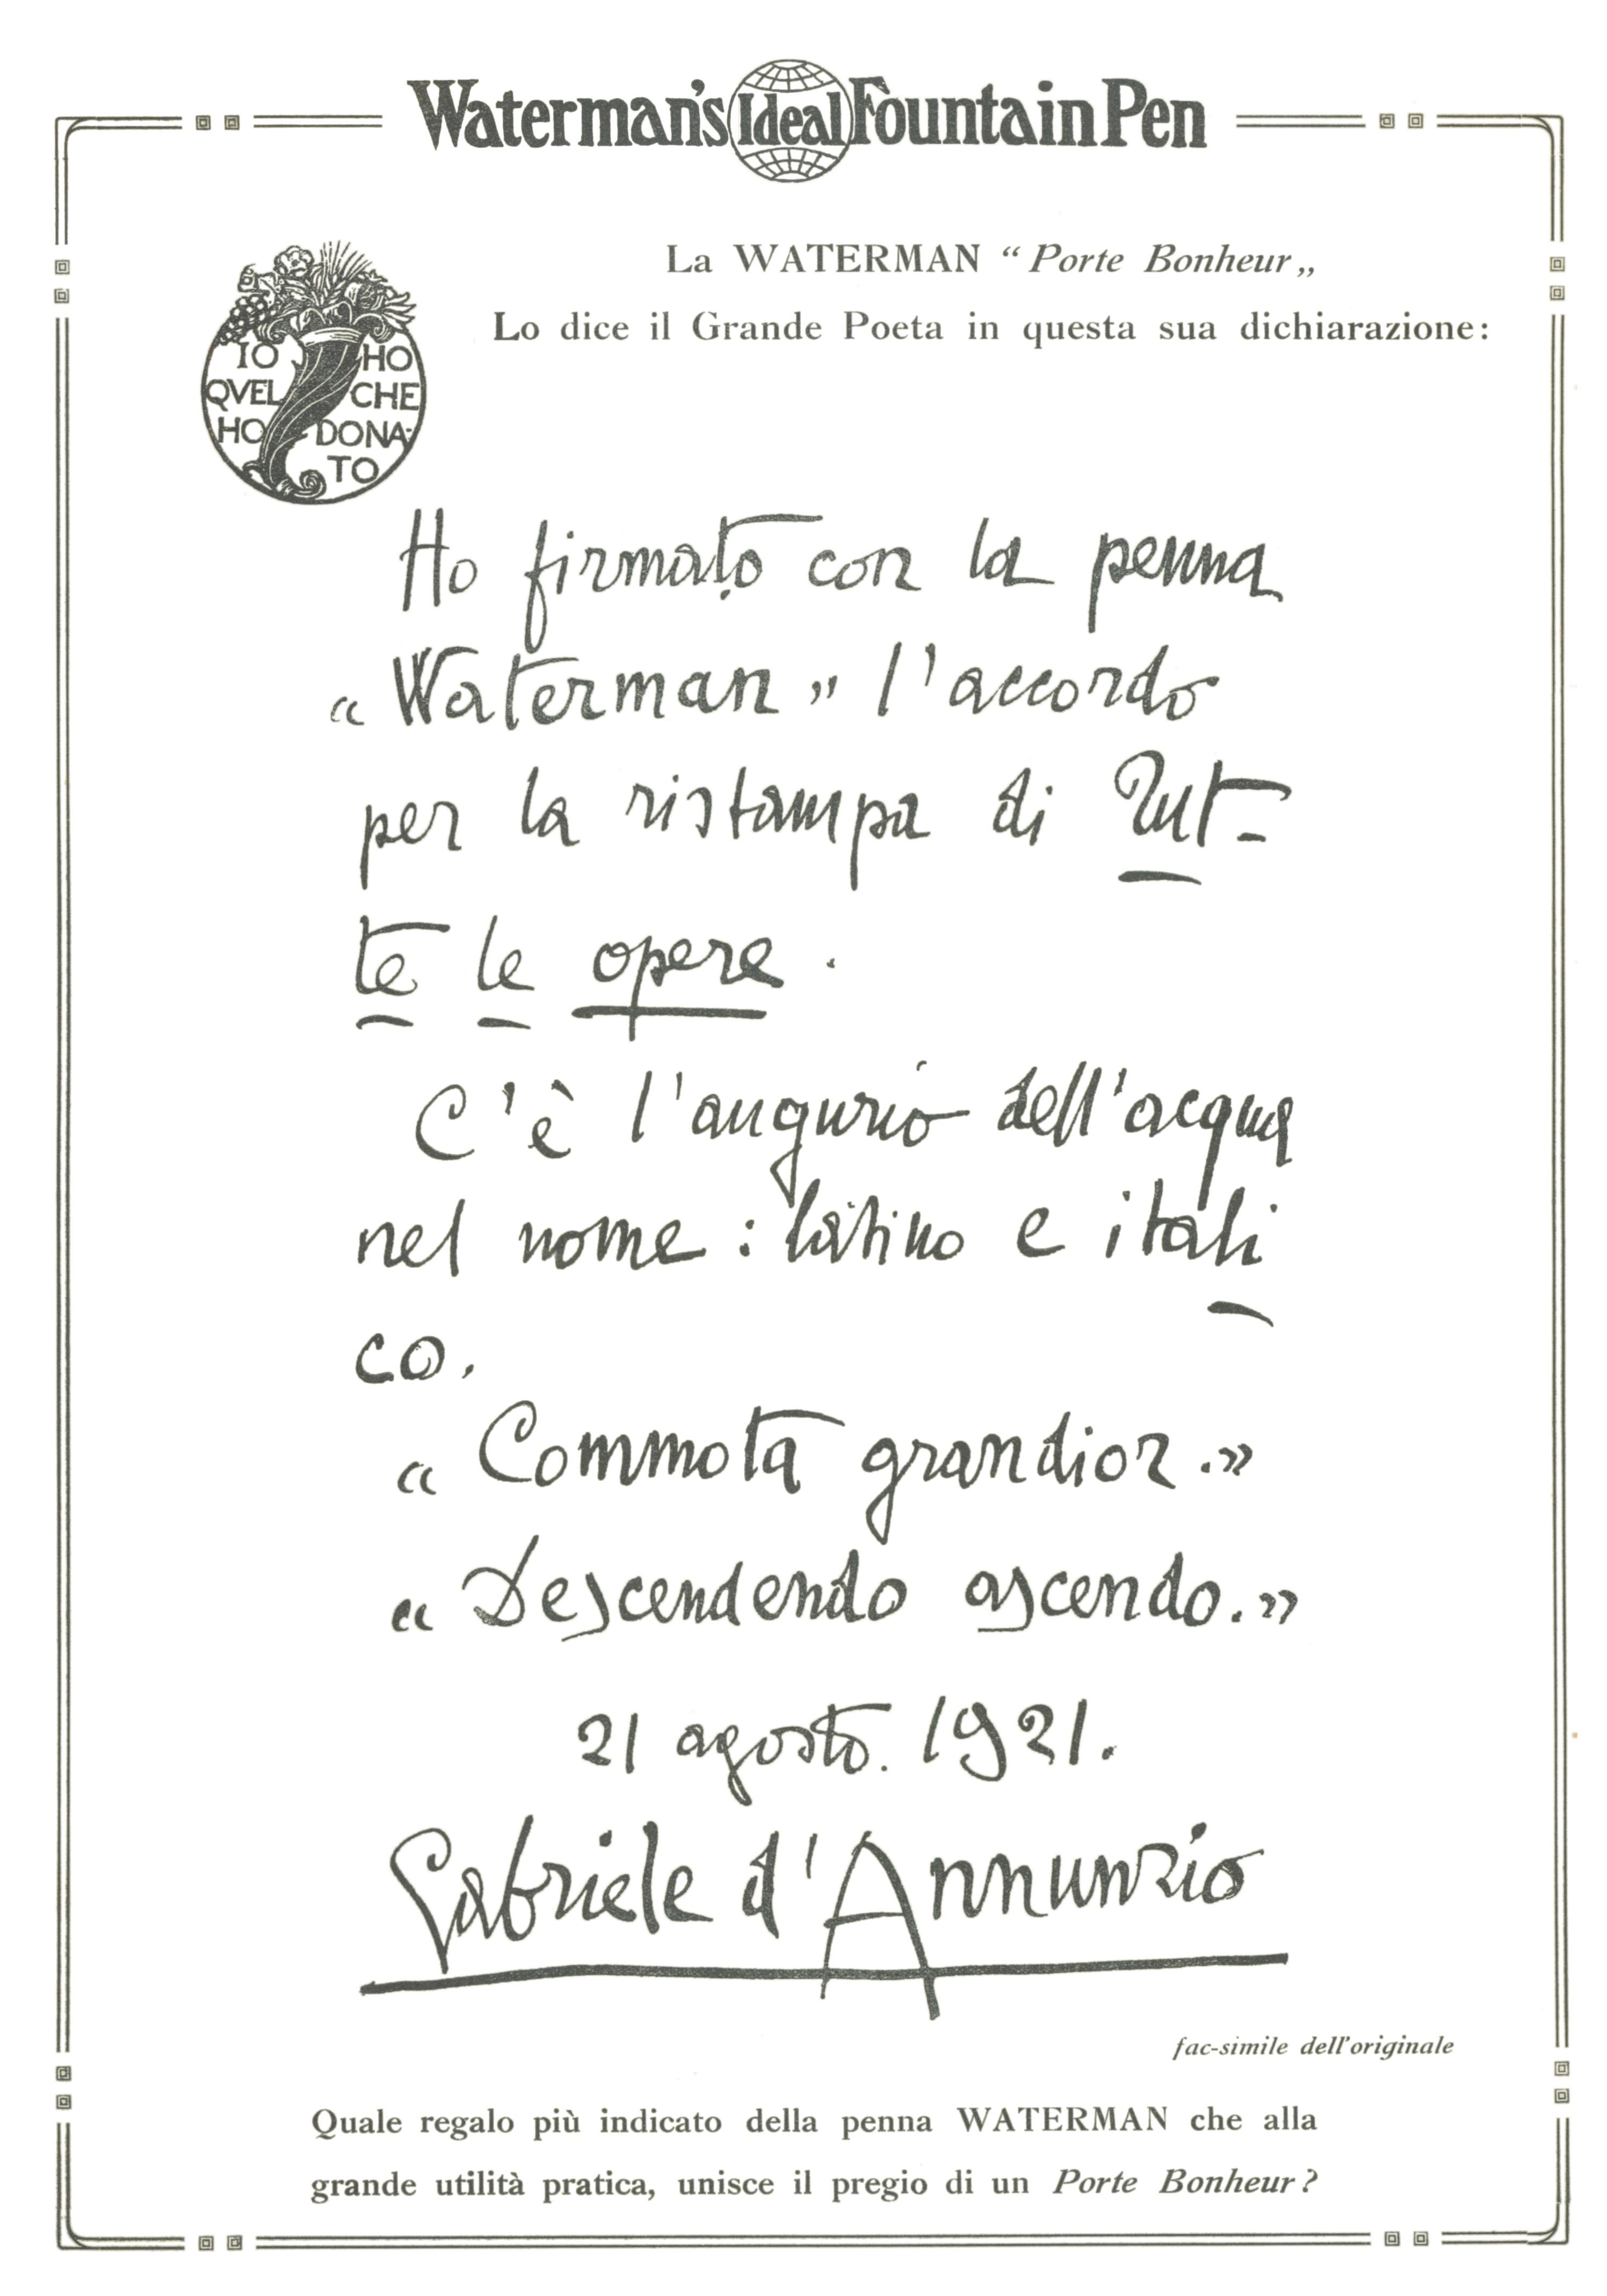 Waterman's Ideal Fountain Pen
La WATERMAN “Porte Bonheur„
Lo dice il Grande Poeta in questa sua dichiarazione:
IO HO
QVEL CHE
HO DONA-
TO
Ho firmato con la penna
« Waterman » l'accordo
per la ristampa di Tut-
te le opere.
C'è l'augurio dell'acqua
nel nome : latino e itali
co.
« Commota grandior.»
« Descendendo ascendo.»
21 agosto. 1921.
Gabriele d'Annunzio
fac-simile dell'originale
Quale regalo più indicato della penna WATERMAN che alla
grande utilità pratica, unisce il pregio di un Porte Bonheur?